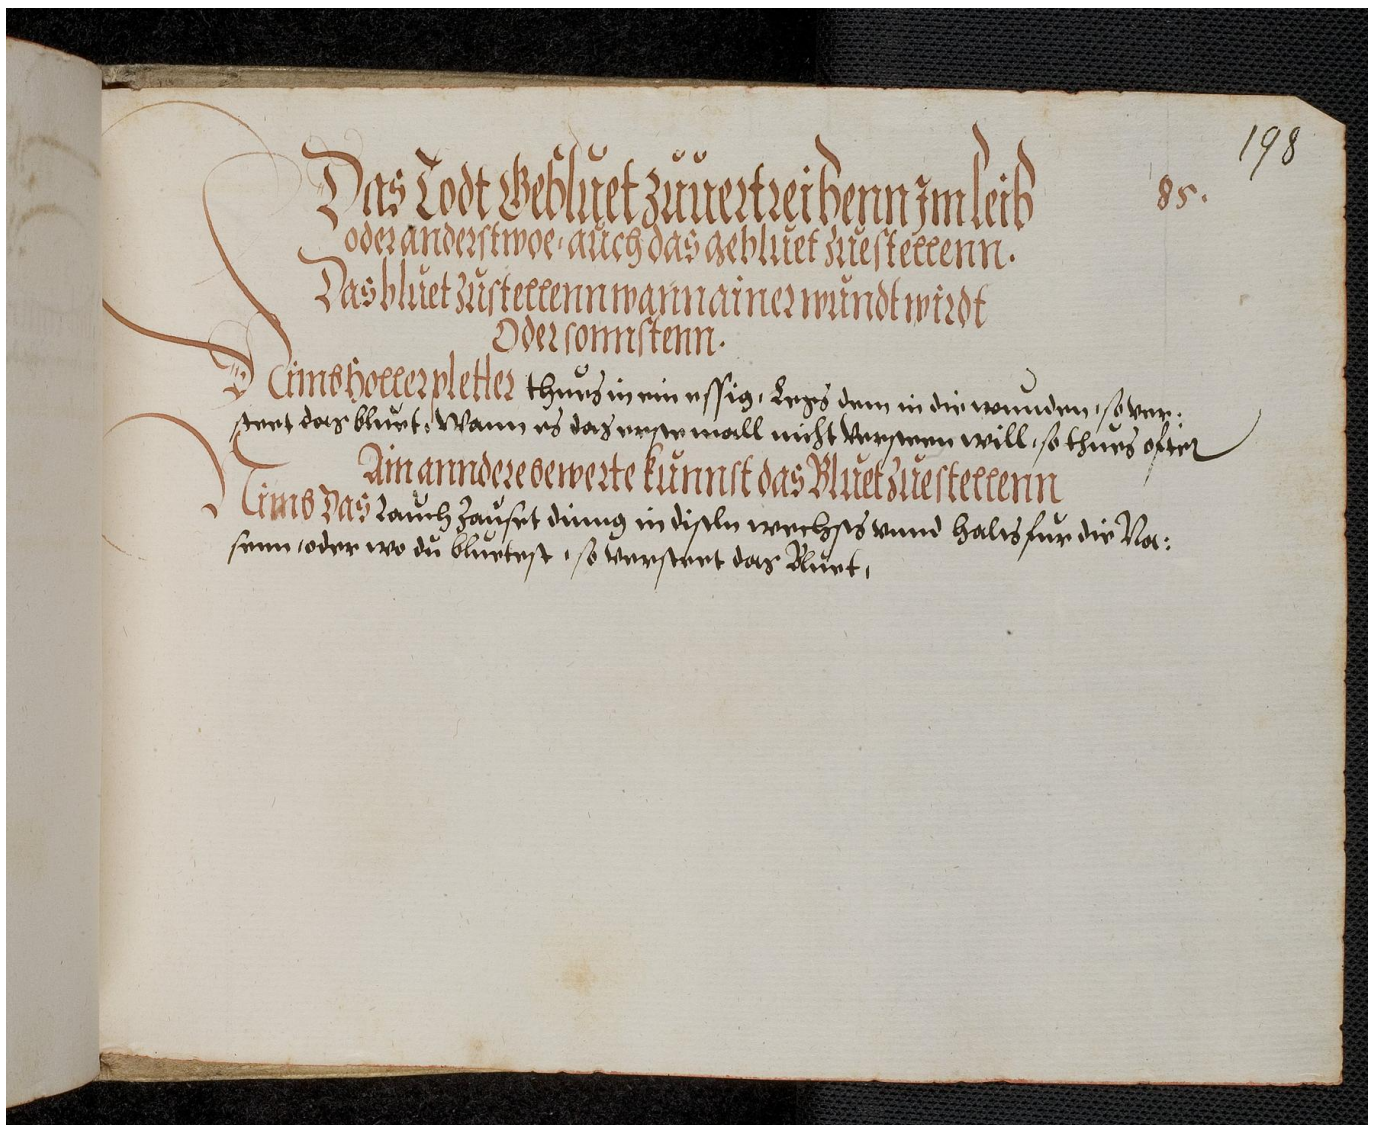 198
85.
Das Todt Gebluet zuuertreibenn Im leib
oder anderstwoe, auch das gebluet zuestellenn.
Das bluet zustellenn wann ainer wundt wirdt
Oder sonnstenn.
Nims holler pletter thues in ein essig, Legs dem in die wunden, so ver:
steet das bluet, Wann es das erste mall nicht versteen will, so thues ofter
Ain anndere bewerte kunnst das Bluet zuestellenn
Nims Das Rauch zauset dinng in disteln wechsts vnnd halts fur die Na:
senn, oder wo du bluetest, so versteet das Bluet,